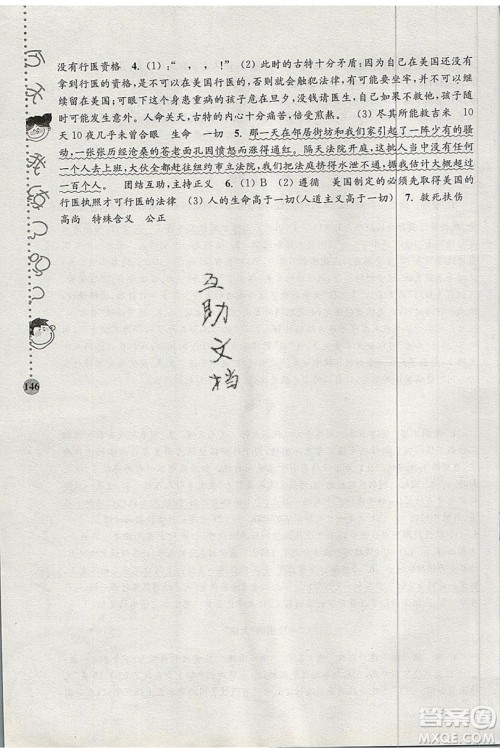 没有行医资格　4. (1)：“　，　，　！”　(2) 此时的古特十分矛盾：因为自己在美国还没有
拿到行医的资格，在美国行医的话，就会触犯法律，有可能要坐牢，否则就能以
继续留在美国；可眼下这个身患重病的孩子危在旦夕，没钱请医生，孩子随时可能
发生意外。人命关天，古特的内心十分痛苦，倍受煎熬。　(3) 尽其所能救吉米　10
天10夜几乎未曾合眼　生命　一切　5. 那一天在邻居街坊和我们家引起了一阵少有的骚
动，一张张历经沧桑的苍老面孔因愤怒而涨得通红。隔天法院开庭，这挑人当中没有一
个人去上班，大伙全赶往纽约市立法院，我们把法庭挤得水泄不通，我估计大概超过
一百个人。　团结互助，主持正义　6. (1) B　(2) 遵循　美国制定的必须先取得美国的
行医执照才可行医的法律　(3) 人的生命高于一切(人道主义高于一切)　7. 救死扶伤
高尚　特殊含义　公正
互助文档
146
答案圈
MXQE.COM